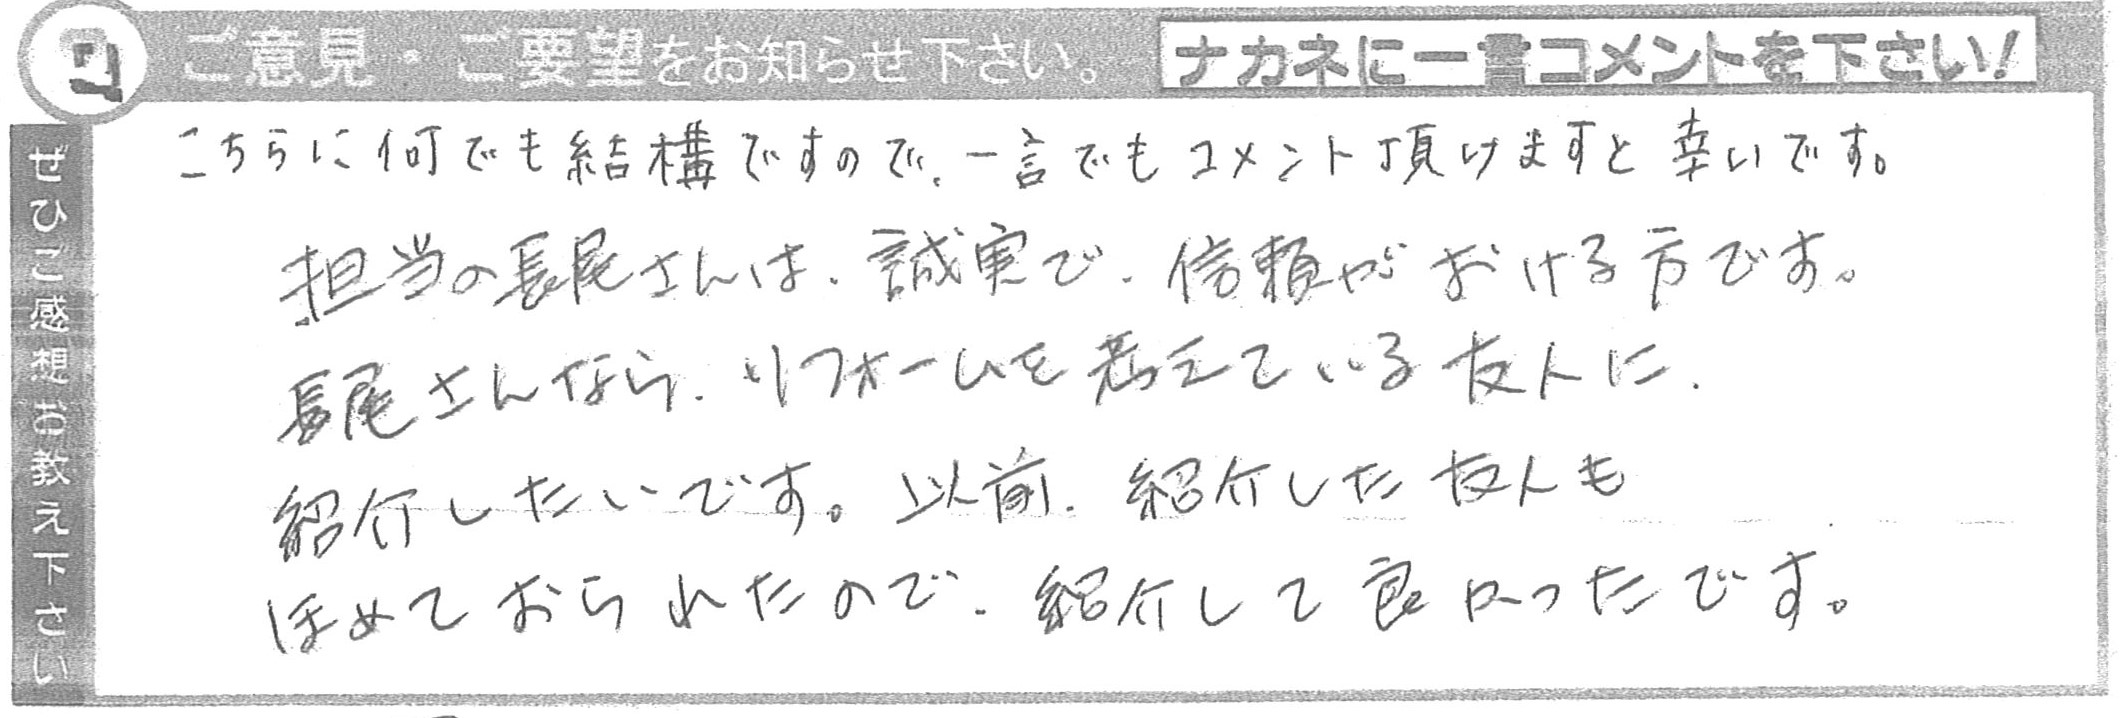 Q
ご意見・ご要望をお知らせ下さい。
ナカネに一言コメントを下さい!
ぜひご感想お教え下さい
こちらに何でも結構ですので、一言でもコメント頂けますと幸いです。
担当の長尾さんは、誠実で、信頼がおける方です。
長尾さんなら、リフォームを考えている友人に、
紹介したいです。以前、紹介した友人も
ほめておられたので、紹介して良かったです。